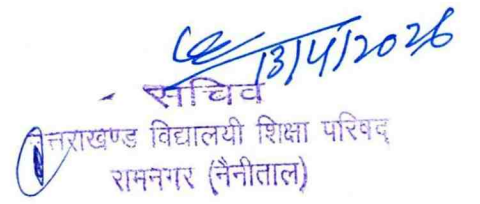 13/4/2026
सचिव
उत्तराखण्ड विद्यालयी शिक्षा परिषद्
रामनगर (नैनीताल)